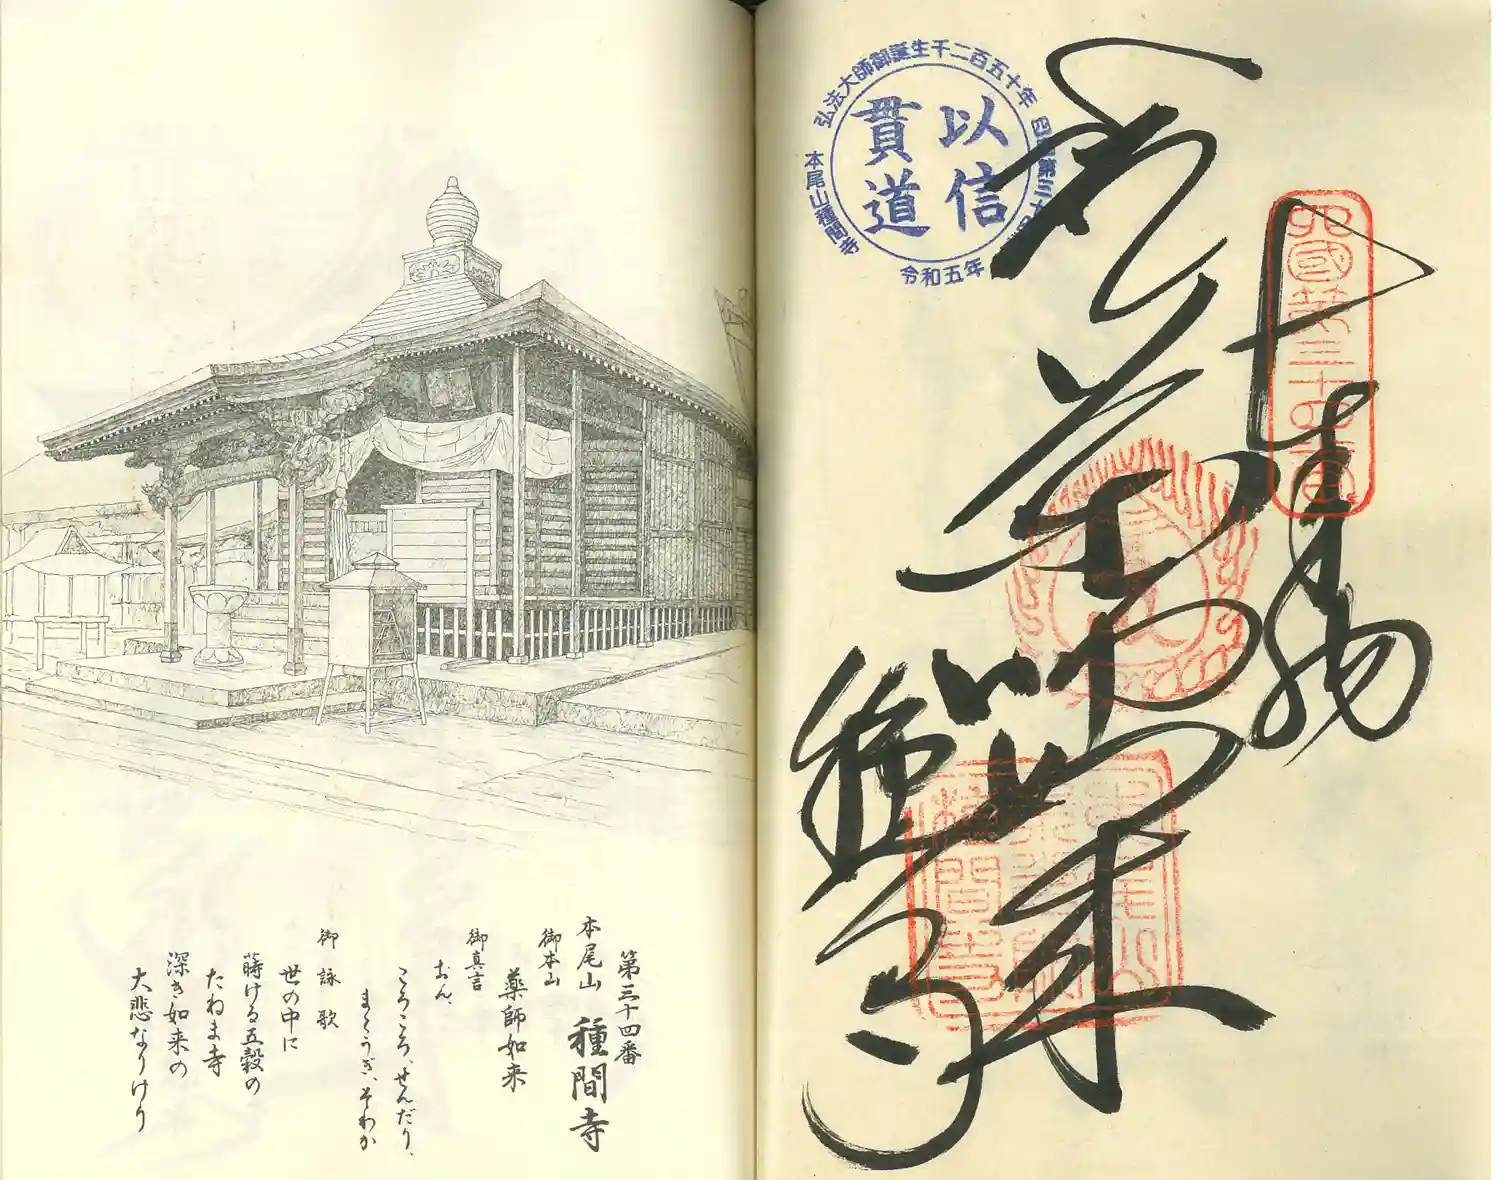 第三十四番
本尾山 種間寺
御本山
薬師如来
御真言
おん、
ころころ、せんだり、
まとうぎ、そわか
御詠歌
世の中に
蒔ける五穀の
たねま寺
深き如来の
大悲なりけり
弘法大師御誕生千二百五十年
四国第三十四番
本尾山種間寺
令和五年
以信
貫道
四國第三十四番
奉拝
薬師如来
種間寺